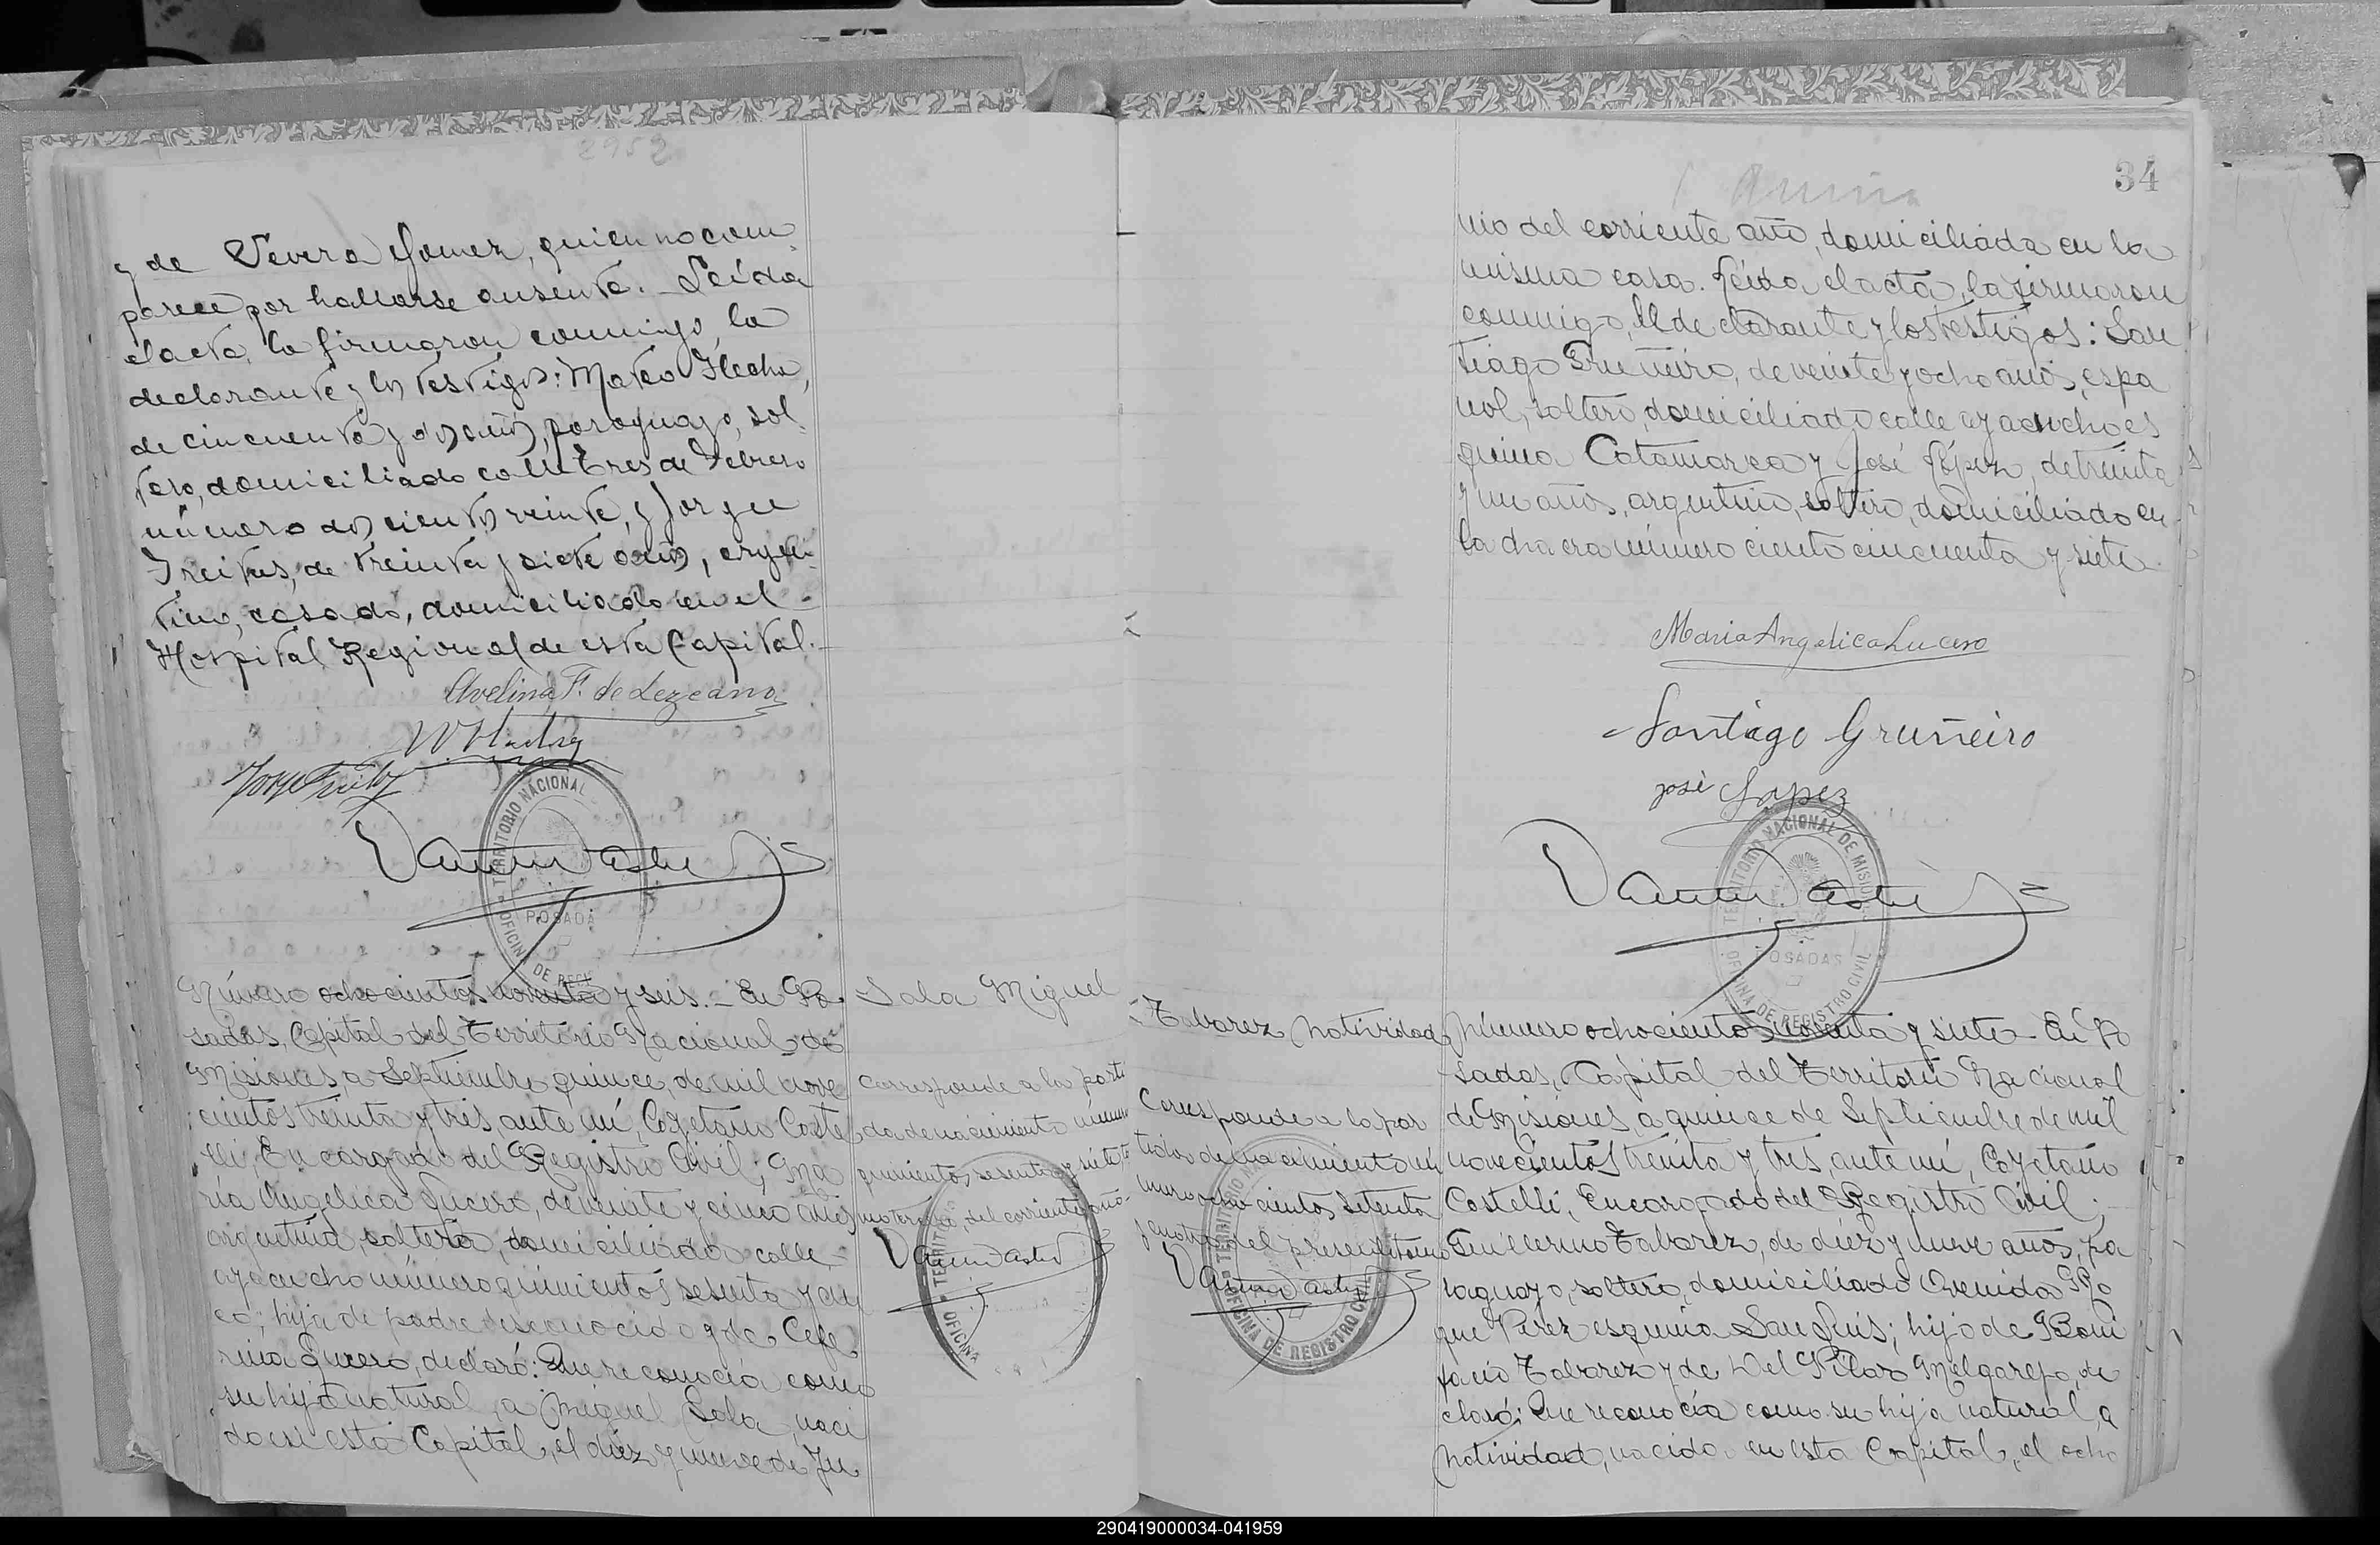 2952
y de Severa Gomez, quien no com-
parece por hallarse ausente. Leída
el acta, la firmaron conmigo, la
declarante y los testigos: Mateo Flecha,
de cincuenta y dos años, paraguayo, sol-
tero, domiciliado calle Tres de Febrero
número doscientos veinte, y Jorge
Freites, de treinta y siete años, argen-
tino, casado, domiciliado en el
Hospital Regional de esta Capital.
Avelina F. de Lezcano
TERRITORIO NACIONAL
POSADA
OFICIN DE REGI
Número ochocientos noventa y seis. - En Po-
sadas, Capital del Territorio Nacional de
Misiones, a Septiembre quince, de mil nove
cientos treinta y tres, ante mí, Cayetano Caste
lli, Encargado del Registro Civil; Ma
ría Angelica Lucero, de veinte y cinco años
argentina, soltera, domiciliada calle
ayacucho número quinientos sesenta y cin
co; hija de padre desconocido y de Cefe
rina Lucero, declaró: Que reconocía como
su hijo natural, a Miguel Sala, naci
do en esta Capital, el diez y nueve de Ju
Sala Miguel
Corresponde a la parti
da de nacimiento número
quinientos sesenta y siete
del corriente año
TERRIT
OFICINA
34
nio del corriente año, domiciliada en la
misma casa. Leída el acta, la firmaron
conmigo, el declarante y los testigos: San
tiago Gruñeiro, de veinte y ocho años, espa
ñol, soltero, domiciliado calle ayacucho es
quina Catamarca y José López, de treinta
y un años, argentino, soltero, domiciliado en
la chacra número ciento cincuenta y siete
Maria Angelica Lucero
Santiago Gruñeiro
josé Lopez
TERRITORIO NACIONAL DE MISIONES
POSADAS
OFICINA DE REGISTRO CIVIL
Tabarez Natividad
Corresponde a la par
tida de nacimiento nú
mero ochocientos setenta
del presente año
TERRITORIO
OFICINA DE REGISTRO CIVIL
Número ochocientos noventa y siete - En Po
sadas, Capital del Territorio Nacional
de Misiones, a quince de Septiembre de mil
novecientos treinta y tres, ante mí, Cayetano
Castelli, Encargado del Registro Civil;
Guillermo Tabarez, de diez y nueve años, pa
raguayo, soltero, domiciliado Avenida Ro
que Pérez esquina San Luis; hijo de Boni
facio Tabarez y de Del Pilar Melgarejo, de
claró: Que reconocía como su hija natural, a
Natividad, nacida en esta Capital, el ocho
290419000034-041959